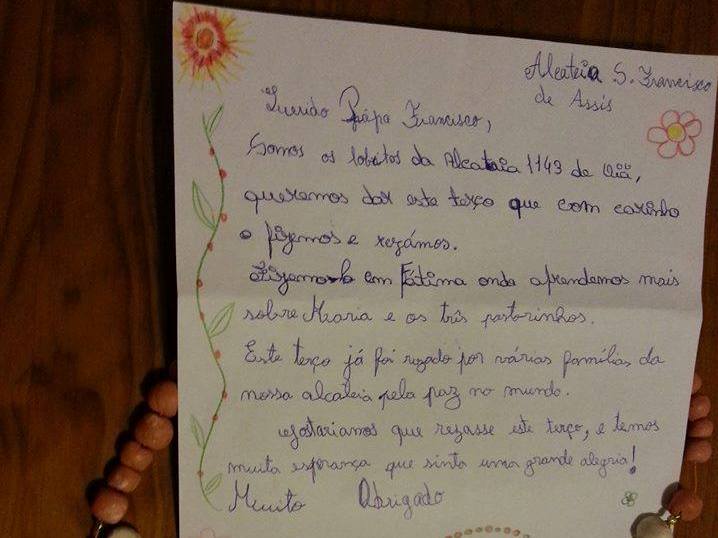 Alcateia S. Francisco
de Assis
Querido Pápa Francisco,
Somos os lobitos da Alcateia 1143 de Oiã,
queremos dar este terço que com carinho
o fizemos e rezámos.
Fizemo-lo em Fátima onde aprendemos mais
sobre Maria e os três pastorinhos.
Este terço já foi rezado por várias famílias da
nossa alcateia pela paz no mundo.
Gostariamos que rezasse este terço, e temos
muita esperança que sinta uma grande alegria!
Muito Obrigado